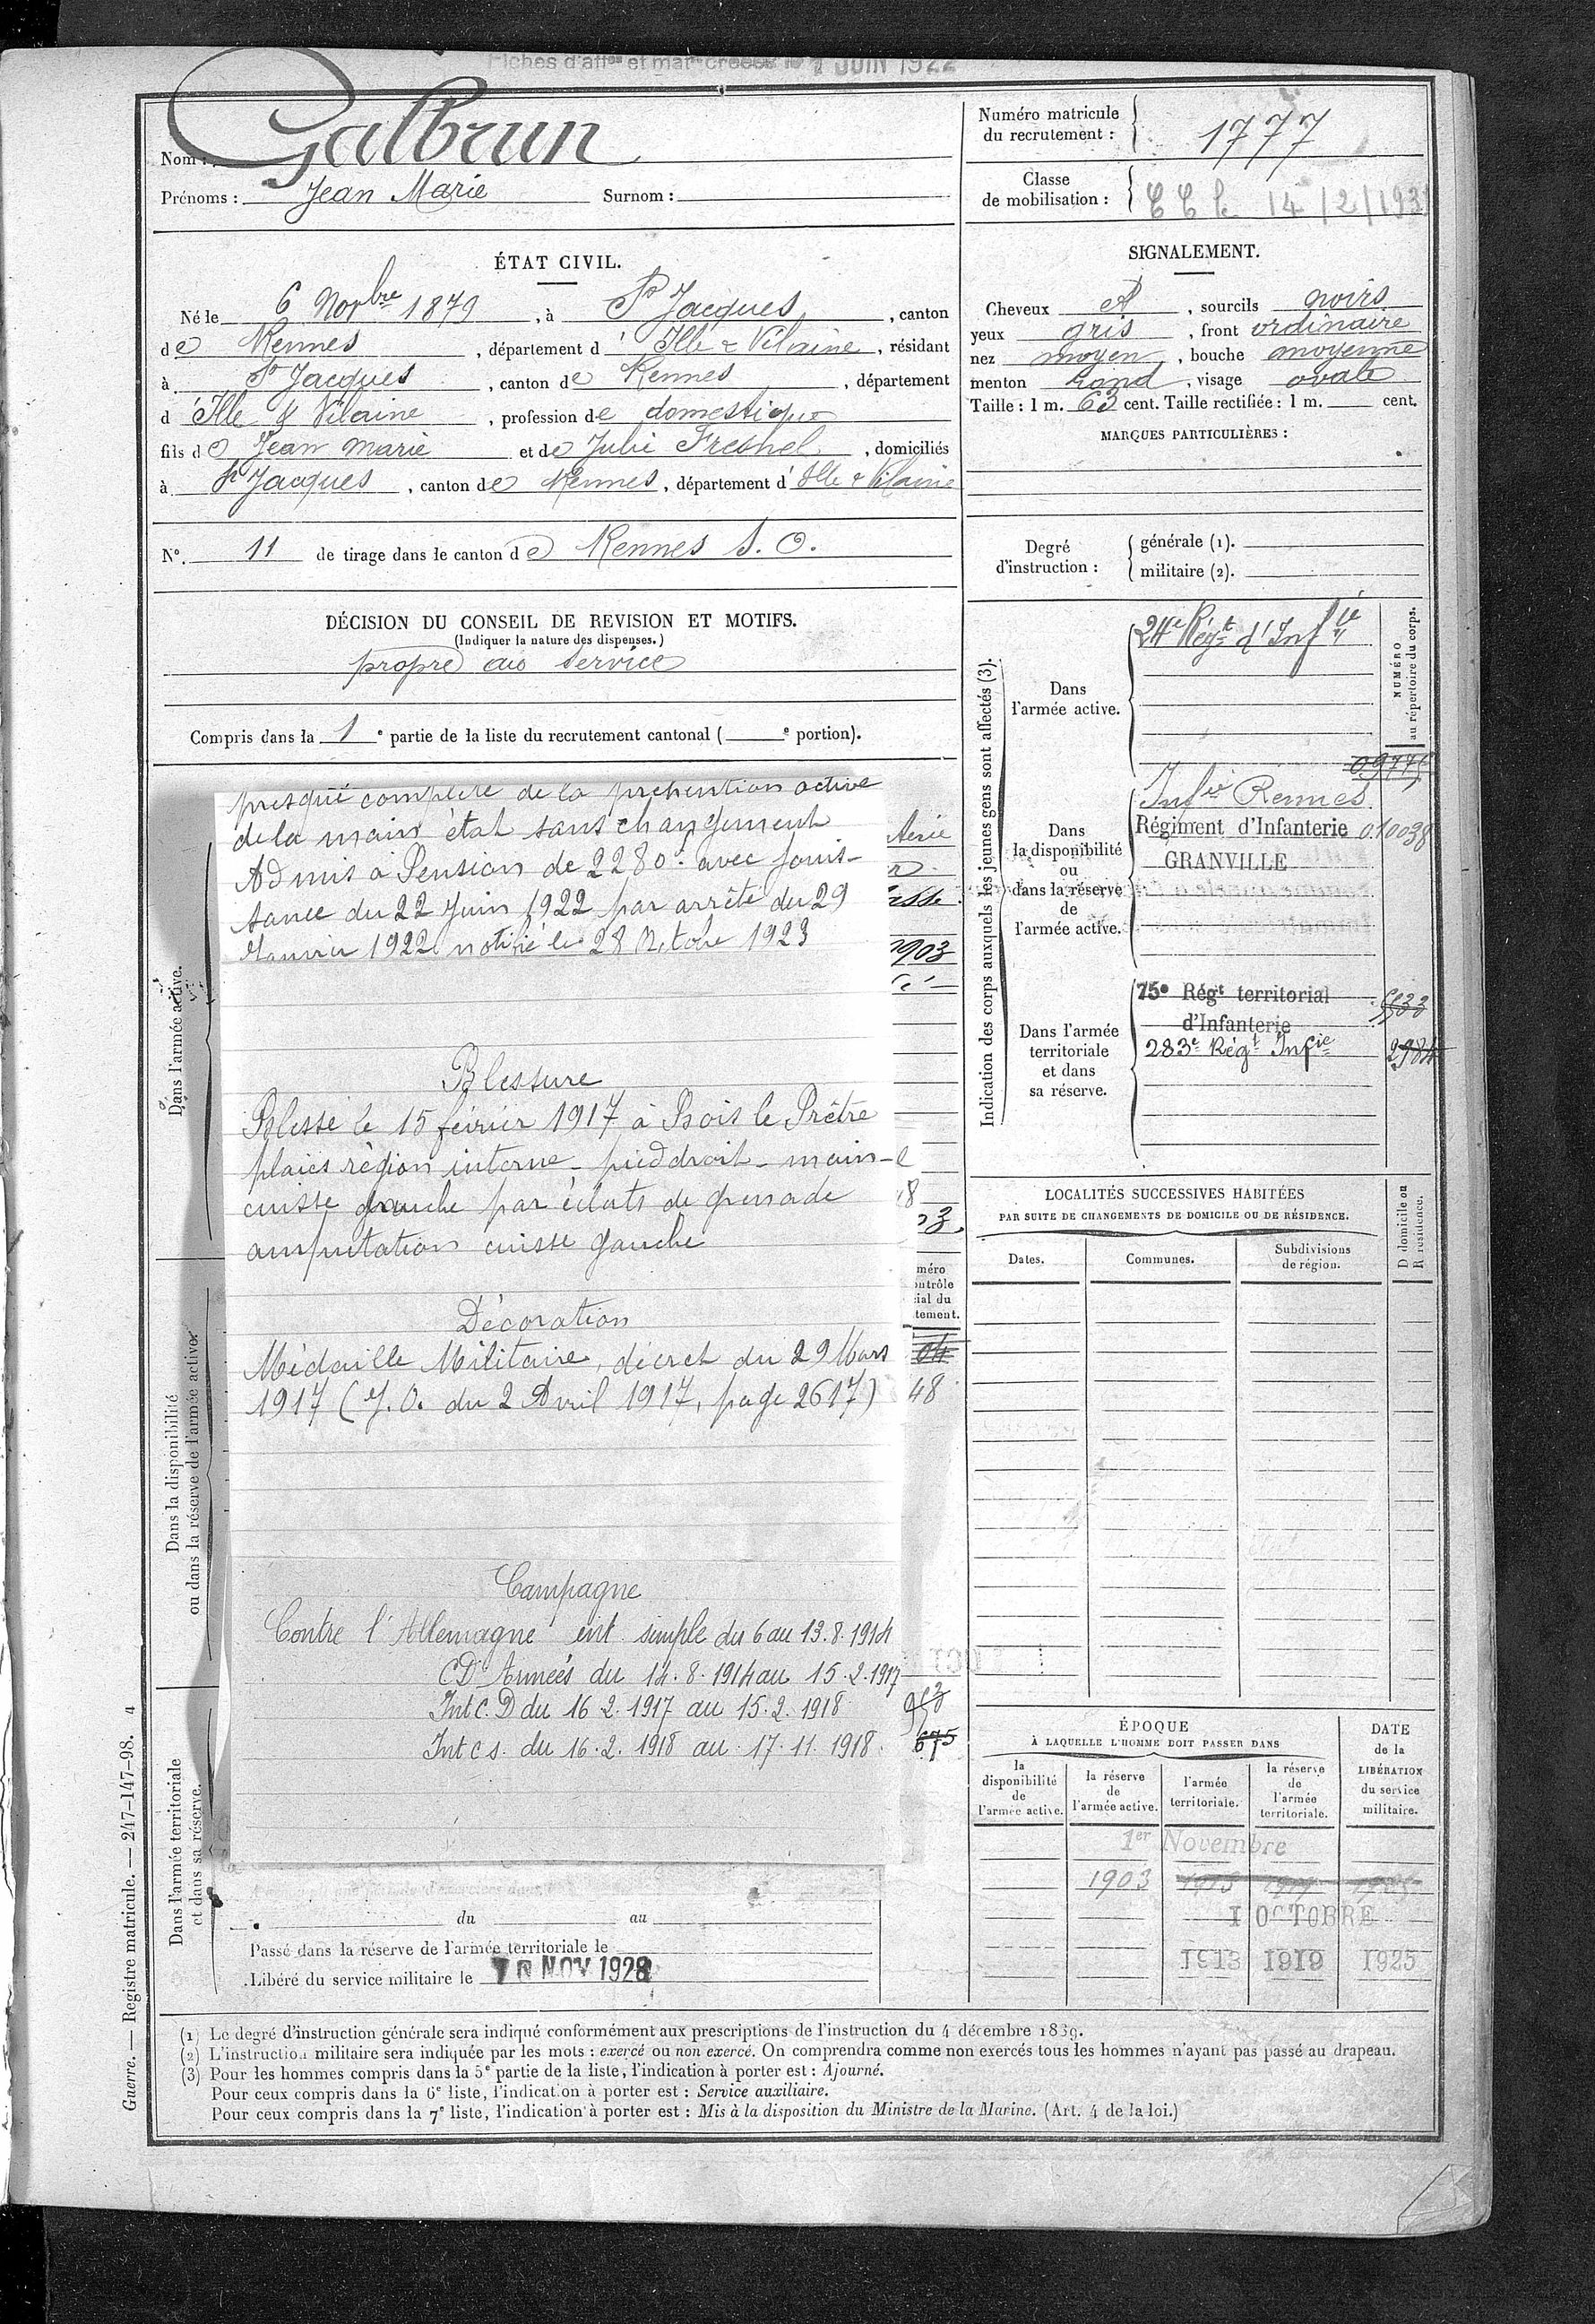 Fiches d'aff^on et mat^le créées le 1 JUIN 1922
Nom : Galbrun
Prénoms : Jean Marie Surnom :
Numéro matricule du recrutement : 1777
Classe de mobilisation : 14/2/193
ÉTAT CIVIL.
Né le 6 Novbre 1879, à St Jacques, canton
de Rennes, département d'Ille & Vilaine, résidant
à St Jacques, canton de Rennes, département
d'Ille & Vilaine, profession de domestique
fils de Jean Marie et de Julie Fresnel, domiciliés
à St Jacques, canton de Rennes, département d'Ille & Vilaine
N° 11 de tirage dans le canton de Rennes S. O.
DÉCISION DU CONSEIL DE REVISION ET MOTIFS.
(Indiquer la nature des dispenses.)
propre au service
Compris dans la 1e partie de la liste du recrutement cantonal ( e portion).
SIGNALEMENT.
Cheveux et, sourcils noirs
yeux gris, front ordinaire
nez moyen, bouche moyenne
menton rond, visage ovale
Taille : 1 m. 63 cent. Taille rectifiée : 1 m. cent.
MARQUES PARTICULIÈRES :
Degré d'instruction :
générale (1).
militaire (2).
Indication des corps auxquels les jeunes gens sont affectés (3).
NUMÉRO au répertoire du corps.
Dans l'armée active.
24e Régt d'Infie
Dans la disponibilité ou dans la réserve de l'armée active.
09775
Infie Rennes
Régiment d'Infanterie 010038
GRANVILLE
Dans l'armée territoriale et dans sa réserve.
75e Régt territorial d'Infanterie
283e Régt Infie 2984
Dans l'armée active.
presque complète de la préhention active
de la main état sans changement
Admis à Pension de 2280f avec jouis-
sance du 22 Juin 1922 par arrêté du 29
Janvier 1922 notifié le 28 Octobre 1923
1903
Blessure
Blessé le 15 février 1917 à Bois le Prêtre
plaies région interne - pied droit - main -
cuisse gauche par éclats de grenade
amputation cuisse gauche
Décoration
Médaille Militaire, décret du 29 Mars
1917 (J.O. du 2 Avril 1917, page 2617)
48
Dans la disponibilité ou dans la réserve de l'armée active.
Campagne
Contre l'Allemagne int. simple du 6 au 13.8.1914
CD Armées du 14.8.1914 au 15.2.1917
Int C.D du 16.2.1917 au 15.2.1918
Int c s. du 16.2.1918 au 17.11.1918.
675
Dans l'armée territoriale et dans sa réserve.
du au
Passé dans la réserve de l'armée territoriale le
Libéré du service militaire le 10 NOV 1928
LOCALITÉS SUCCESSIVES HABITÉES
PAR SUITE DE CHANGEMENTS DE DOMICILE OU DE RÉSIDENCE.
Dates. Communes. Subdivisions de région.
D domicile ou R résidence.
ÉPOQUE
À LAQUELLE L'HOMME DOIT PASSER DANS
la disponibilité de l'armée active.
la réserve de l'armée active.
l'armée territoriale.
la réserve de l'armée territoriale.
DATE de la LIBÉRATION du service militaire.
1er Novembre
1903
1 OCTOBRE
1913 1919 1925
(1) Le degré d'instruction générale sera indiqué conformément aux prescriptions de l'instruction du 4 décembre 1889.
(2) L'instruction militaire sera indiquée par les mots : exercé ou non exercé. On comprendra comme non exercés tous les hommes n'ayant pas passé au drapeau.
(3) Pour les hommes compris dans la 5e partie de la liste, l'indication à porter est : Ajourné.
Pour ceux compris dans la 6e liste, l'indication à porter est : Service auxiliaire.
Pour ceux compris dans la 7e liste, l'indication à porter est : Mis à la disposition du Ministre de la Marine. (Art. 4 de la loi.)
Guerre. — Registre matricule. — 247-147-98. 4